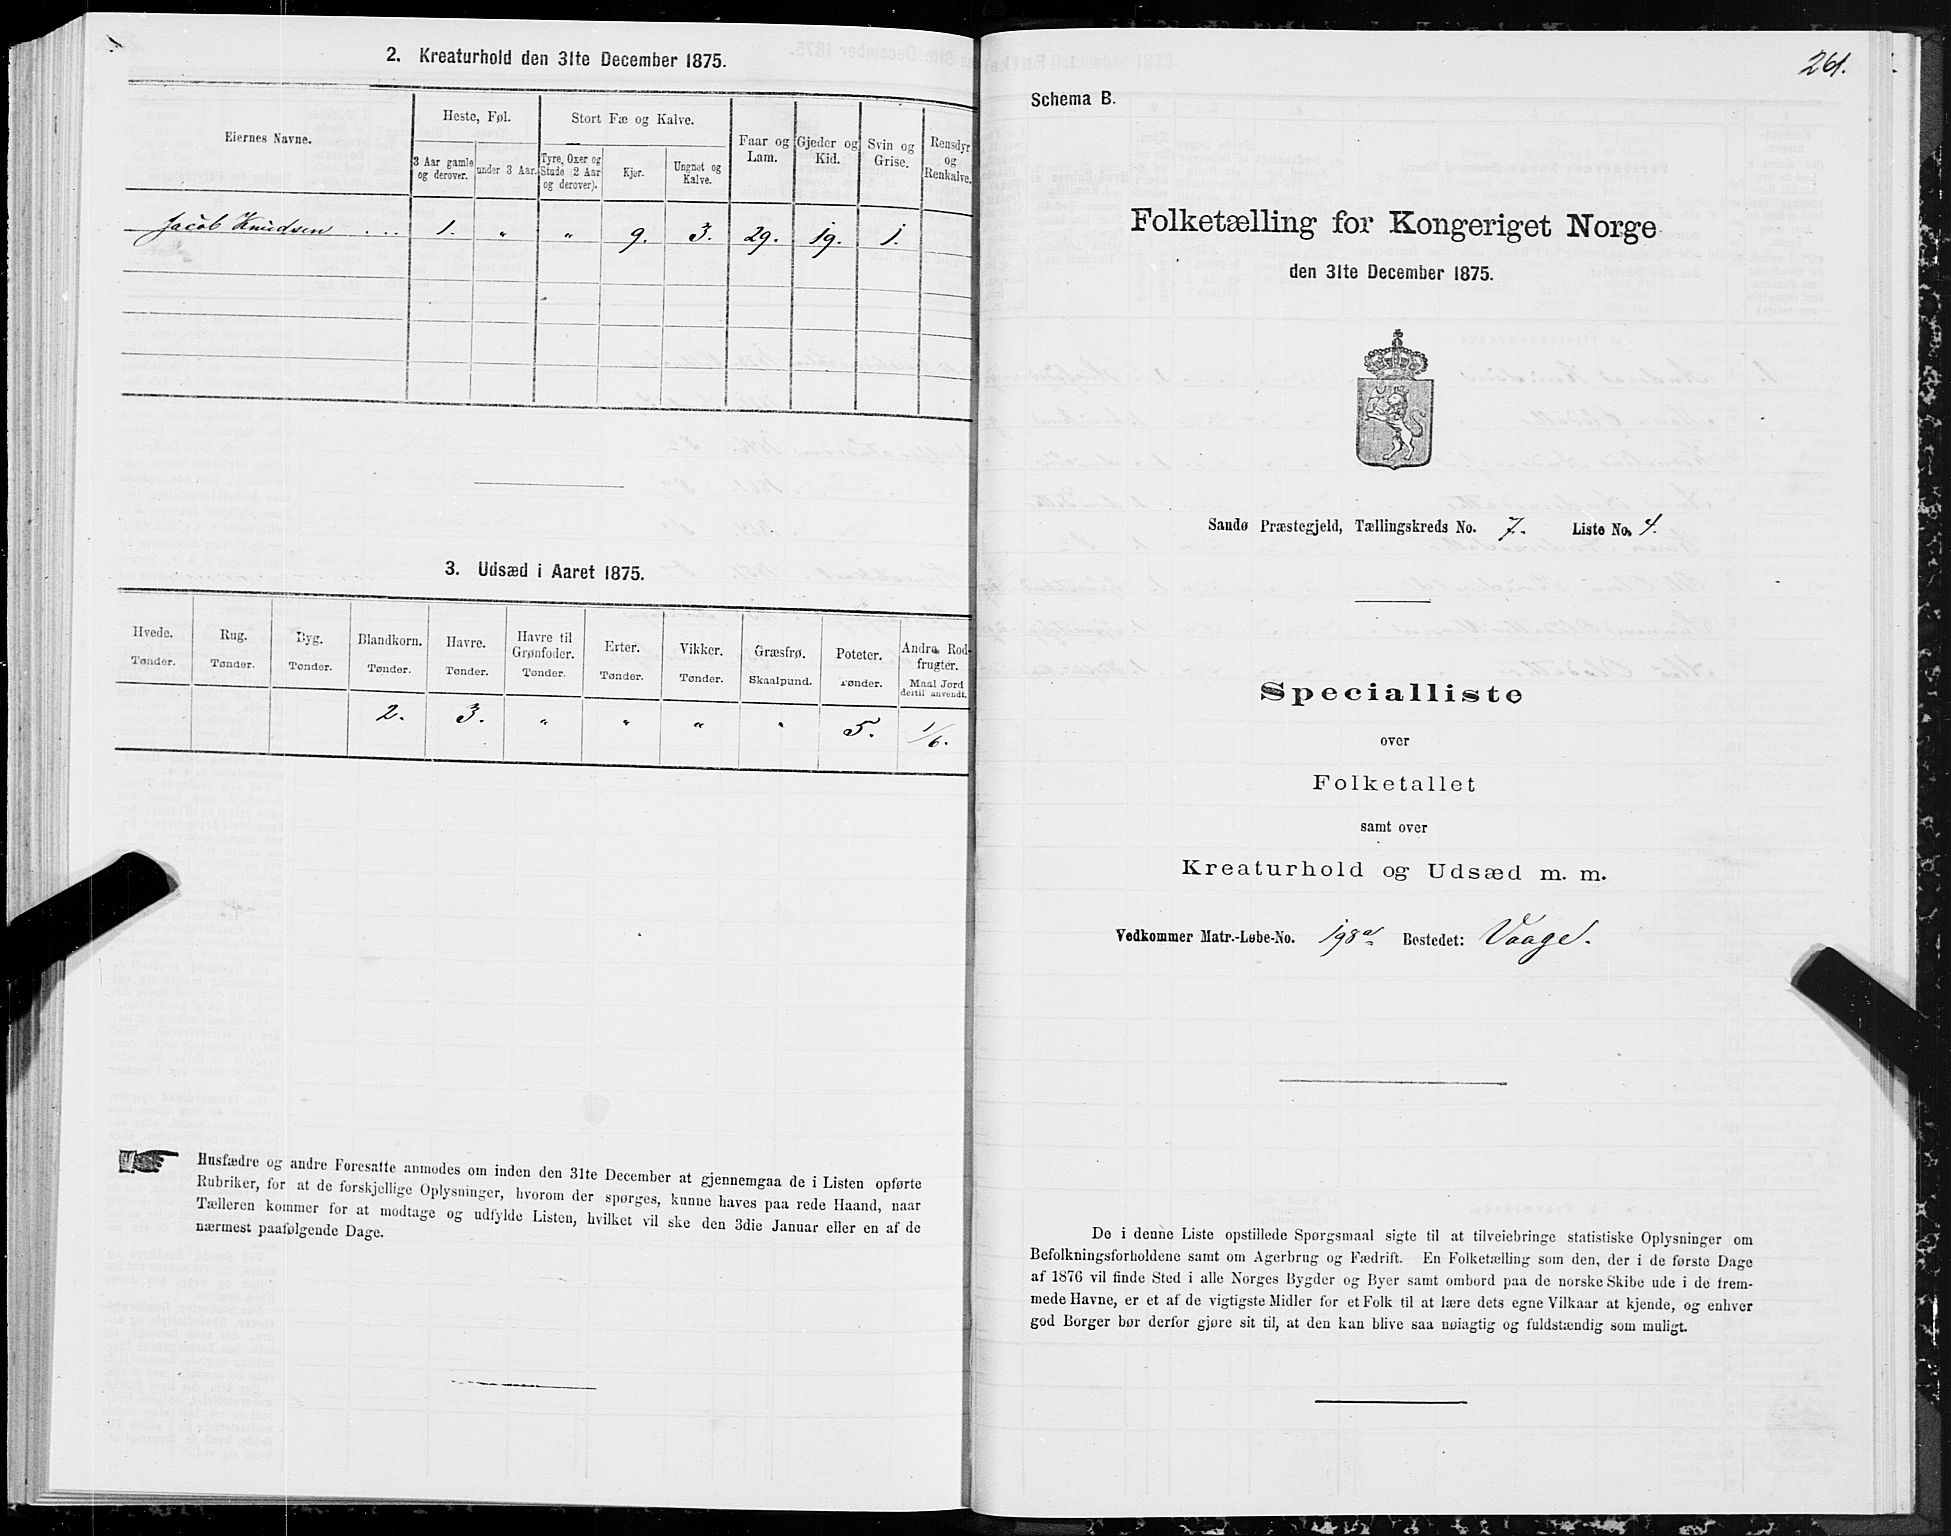 2. Kreaturhold den 31te December 1875.
Eiernes Navne.
Heste, Føl.
Stort Fæ og Kalve.
Faar og Lam.
Gjeder og Kid.
Svin og Grise.
Rensdyr og Renkalve.
3 Aar gamle og derover.
under 3 Aar.
Tyre, Oxer og Stude (2 Aar og derover).
Kjør.
Ungnøt og Kalve.
Jacob Knudsen . . . 1. „ „ 9. 3. 29. 19. 1.
3. Udsæd i Aaret 1875.
Hvede. Rug. Byg. Blandkorn. Havre. Havre til Grønfoder. Erter. Vikker. Græsfrø. Poteter. Andre Rodfrugter.
Tønder. Tønder. Tønder. Tønder. Tønder. Tønder. Tønder. Tønder. Skaalpund. Tønder. Maal Jord dertil anvendt.
2. 3. „ „ „ „ 5. 1/6.
Husfædre og andre Foresatte anmodes om inden den 31te December at gjennemgaa de i Listen opførte
Rubriker, for at de forskjellige Oplysninger, hvorom der spørges, kunne haves paa rede Haand, naar
Tælleren kommer for at modtage og udfylde Listen, hvilket vil ske den 3die Januar eller en af de
nærmest paafølgende Dage.
261.
Schema B.
Folketælling for Kongeriget Norge
den 31te December 1875.
Sandø Præstegjeld, Tællingskreds No. 7. Liste No. 4.
Specialliste
over
Folketallet
samt over
Kreaturhold og Udsæd m. m.
Vedkommer Matr.-Løbe-No. 198a Bostedet: Vaage.
De i denne Liste opstillede Spørgsmaal sigte til at tilveiebringe statistiske Oplysninger om
Befolkningsforholdene samt om Agerbrug og Fædrift. En Folketælling som den, der i de første Dage
af 1876 vil finde Sted i alle Norges Bygder og Byer samt ombord paa de norske Skibe ude i de frem-
mede Havne, er et af de vigtigste Midler for et Folk til at lære dets egne Vilkaar at kjende, og enhver
god Borger bør derfor gjøre sit til, at den kan blive saa nøiagtig og fuldstændig som muligt.